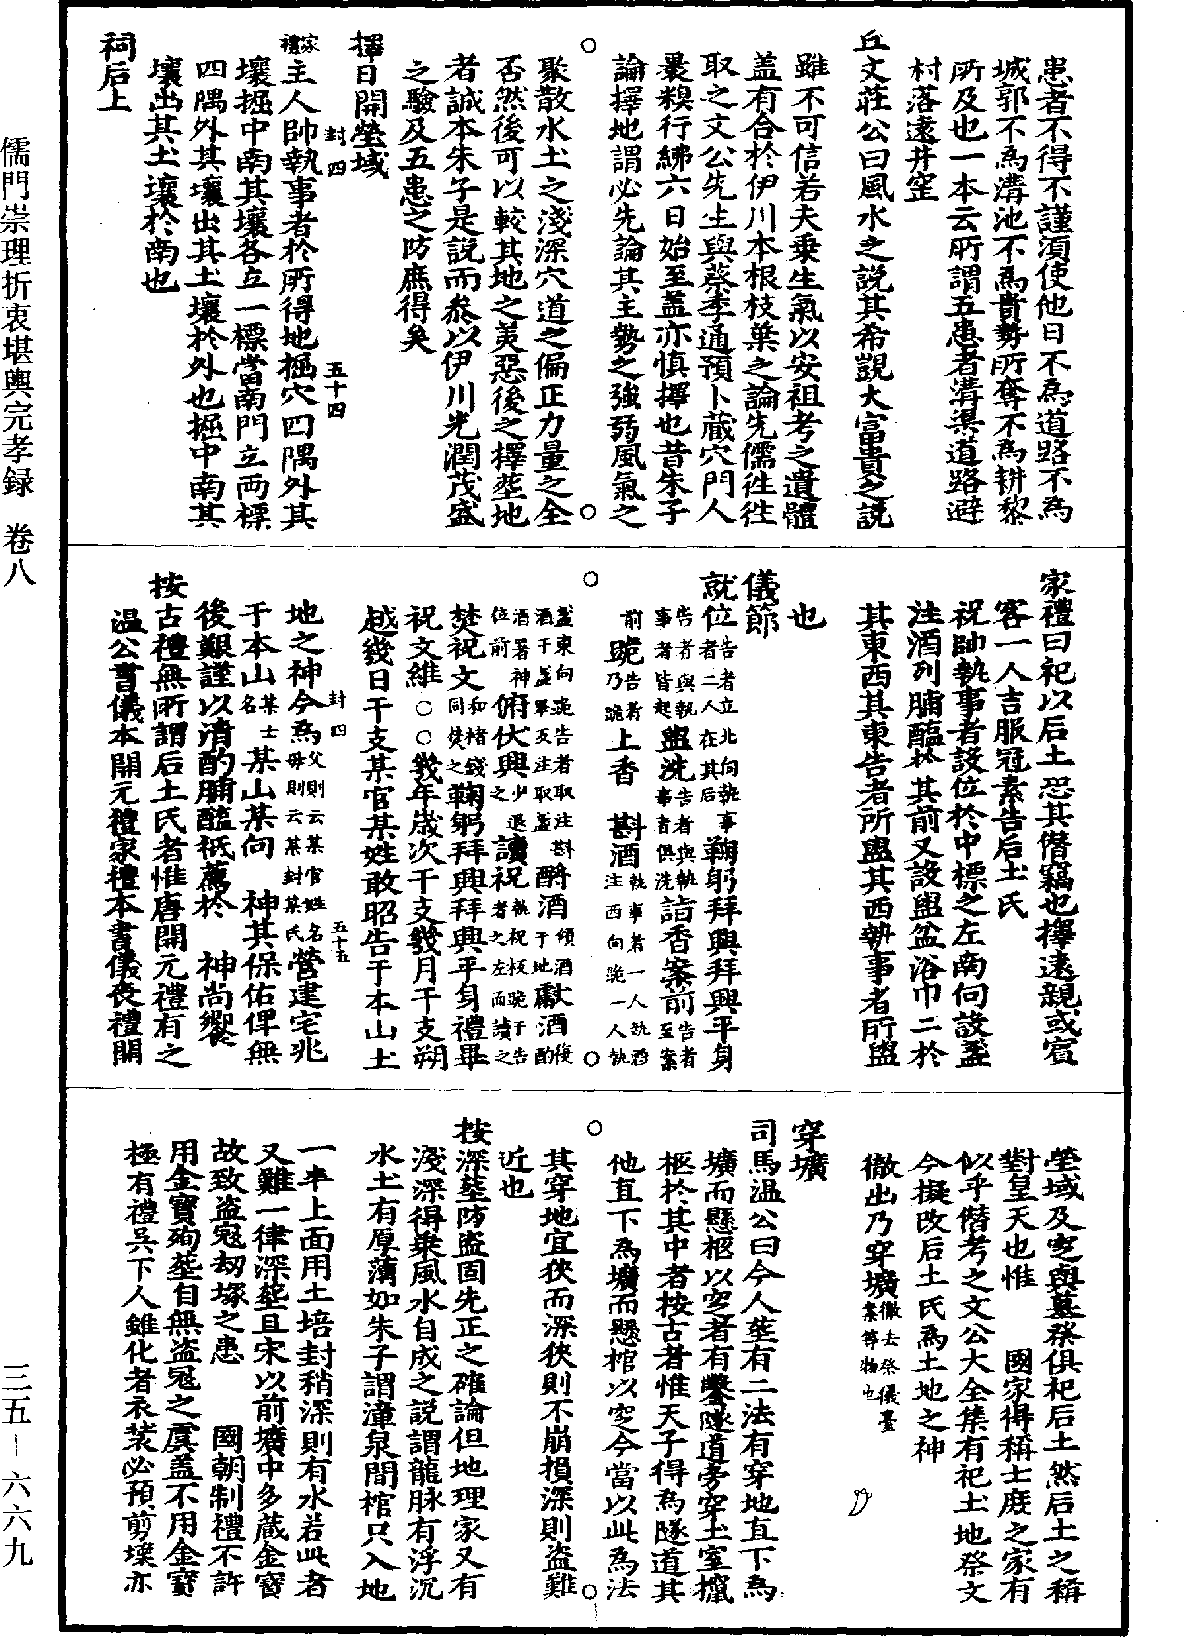 患者不得不謹須使他日不為道路不為
城郭不為溝池不為貴勢所奪不為耕犂
所及也一本云所謂五患者溝渠道路避
村落遠井窑
丘文莊公曰風水之説其希覬大富貴之説
雖不可信若夫乗生氣以安祖考之遺體
盖有合於伊川本根枝葉之論先儒徃徃
取之文公先生與蔡季通預卜蔵穴門人
褁糗行紼六日始至盖亦慎擇也昔朱子
論擇地謂必先論其主勢之強弱風氣之
聚散水土之淺深穴道之偏正力量之全
否然後可以較其地之美惡後之擇塟地
者誠本朱子是説而叅以伊川光潤茂盛
之驗及五患之防庶得矣
擇日開塋域
封四 五十四
家禮主人帥執事者於所得地掘穴四隅外其
壤掘中南其壤各立一標當南門立両標
四隅外其壤出其土壤於外也掘中南其
壤出其土壤於南也
祠后土
家禮曰祀以后土恐其僭竊也擇遠親或賔
客一人吉服冠素告后土氏
祝帥執事者設位於中標之左南向設盞
注酒列脯醢於其前又設盥盆浴巾二於
其東西其東告者所盥其西執事者所盥
也
儀節
就位告者立北向執事者二人在其后鞠躬拜興拜興平身
告者與執事者皆起盥洗告者與執事者俱洗詣香案前告者至案前
跪告者乃跪上香 斟酒執事者一人執酒注西向跪一人執
盞東向跪告者取注斟酒于盞畢反注取盞酹酒傾酒于地獻酒復酌酒置神位前
俯伏興少退之讀祝祝執板跪于告者之左而讀之
焚祝文和楮錢同焚之鞠躬拜興拜興平身禮畢
祝文維○○幾年歳次干支幾月干支朔
越幾日干支某官某姓敢昭告于本山土
封四 五十五
地之神今為父則云某官姓名母則云某封某氏營建宅兆
于本山某士名某山某向 神其保佑俾無
後艱謹以清酌脯醢祇薦於 神尚饗
按古禮無所謂后土氏者惟唐開元禮有之
温公書儀本開元禮家禮本書儀喪禮開
塋域及窆與墓祭俱祀后土然后土之稱
對皇天也惟 國家得稱士庻之家有
似乎僭考之文公大全集有祀土地祭文
今擬改后土氏為土地之神
徹出乃穿壙徹去祭儀臺案等物也
穿壙
司馬温公曰今人塟有二法有穿地直下為
壙而懸柩以窆者有鑿隧道旁穿土室攛
柩於其中者按古者惟天子得為隧道其
他直下為壙而懸棺以窆今當以此為法
其穿地宜狹而深狹則不崩損深則盗難
近也
按深塟防盗固先正之確論但地理家又有
淺深得乗風水自成之説謂龍脉有浮沉
水土有厚薄如朱子謂漳泉間棺只入地
一半上面用土培封稍深則有水若此者
又難一律深塟且宋以前壙中多蔵金寳
故致盗寇刼塚之患 國朝制禮不許
用金寳殉塟自無盗寇之虞盖不用金寳
極有禮呉下人錐化者衣装必預剪壞亦
儒門崇理折衷堪輿完孝録 卷八
三五—六六九